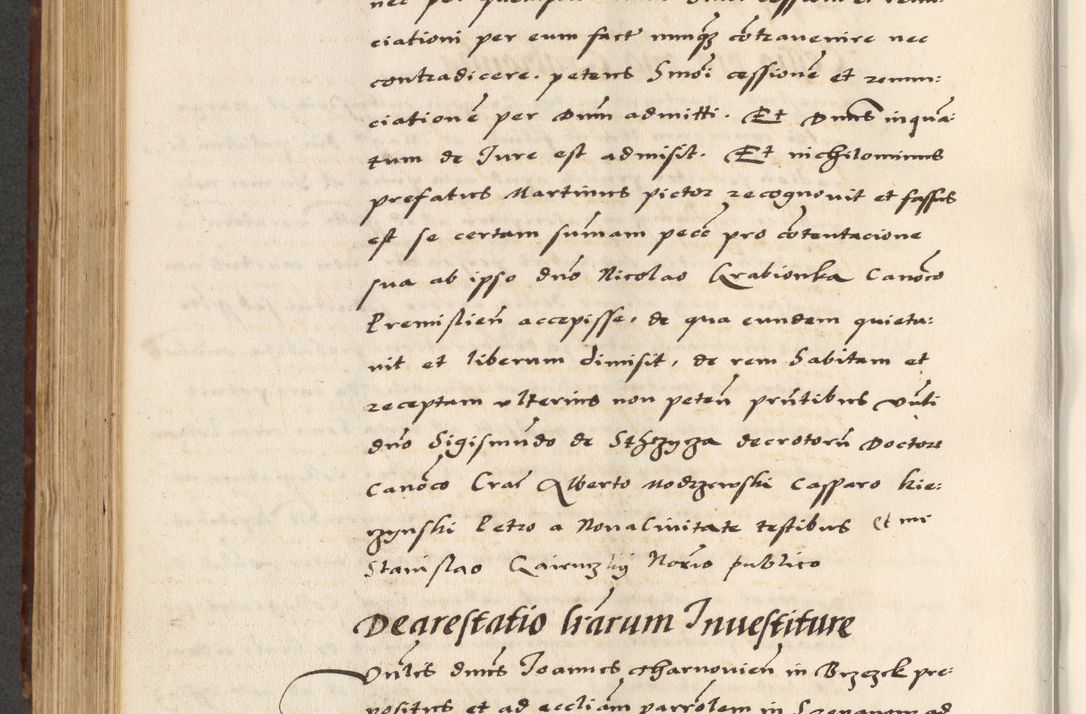 ciationi per eum fact nunq̃ cõtravenire nec
contradicere. petens hmõi cessionẽ et renun:
ciationẽ per Dnm̃ admitti. Et Dnus inquã:
tum de Iure est admisit. Et nichilominus
prefatus Martinus pictor recognovit et fassus
est se certam sum̃am pecc̃ pro cõtentacione
sua ab ipso dnõ Nicolao Grabionka Canõco
Premislien̄ accepisse, de qua eundem quieta:
vit et liberum dimisit, de rem habitam et
receptam ulterius non peten̄ pñtibus Vñli
dnõ Sigismũdo de Sthężyca decrotorũ Doctore
Canõco Crac̃ Alberto Modrzewski Casparo kie:
zynski Petro a Nova Civitate testibus et mi
Stanislao Norĩo publico
Dearestatio lr̃arum Investiture
Vñlis dnus Joannes ctharnovien̄ in Brzezek pre:
positus et ad eccliam parrõlem in ad